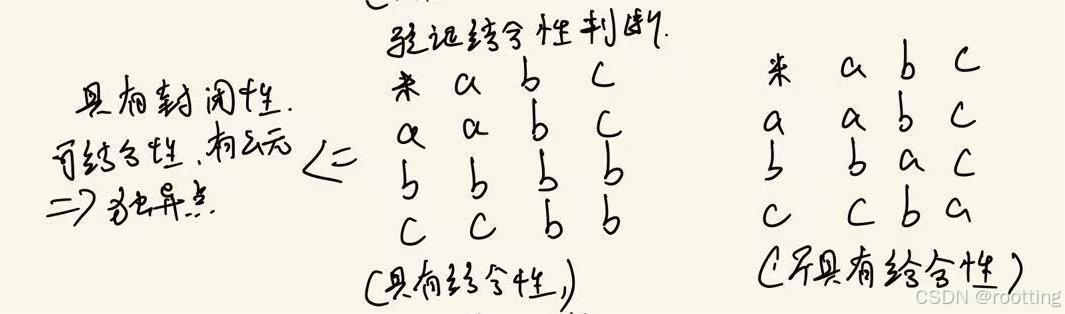 验证结合性判断.
* a b c
a a b c
b b b b
c c b b
(具有结合性,)
具有封闭性.
可结合性,有幺元 <=
=> 独异点.
* a b c
a a b c
b b a c
c c b a
(不具有结合性)
CSDN @rootting